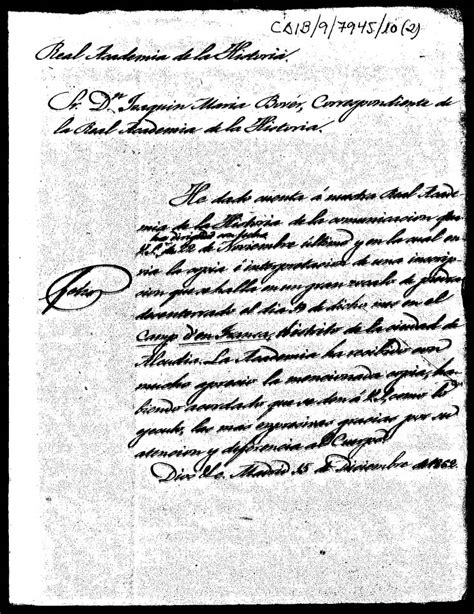 CAIB/9/7945/10(2)
Real Academia de la Historia.
Sr. Dn. Joaquin Maria Bover, Correspondiente de
la Real Academia de la Historia.
He dado cuenta á nuestra Real Acade
mia de la Historia de la comunicacion que
ha dirigido con fecha
de 20 de Noviembre último y en la cual en
via la copia é interpretacion de una inscrip
cion que se halla en un gran zocalo de piedra
desenterrado el dia de dicho mes en el
Camp d'en França, distrito de la ciudad de
Alcudia. La Academia ha recibido con
mucho aprecio la mencionada copia, ha
biendo acordado que se den á V.S., como lo
ejecuto, las más expresivas gracias por su
atencion y deferencia al Cuerpo.
Dios &c. Madrid 15 de Diciembre de 1862.